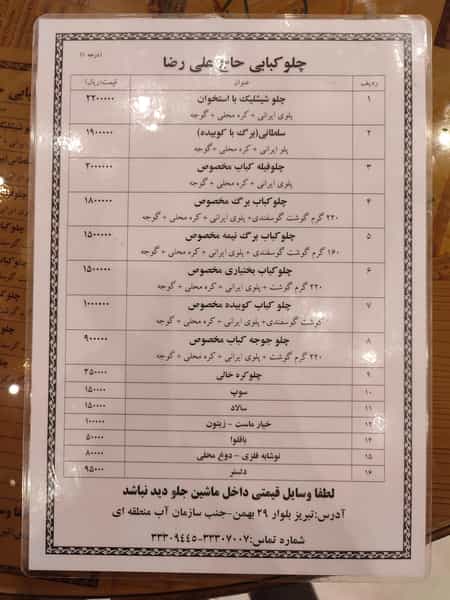 چلوکبابی حاج علی رضا
(درجه ۱)
ردیف عنوان قیمت(ریال)
۱ چلو شیشلیک با استخوان ۲۲۰۰۰۰۰
پلوی ایرانی + کره محلی + گوجه
۲ سلطانی(برگ با کوبیده) ۱۹۰۰۰۰۰
پلو ایرانی + کره محلی + گوجه
۳ چلوفیله کباب مخصوص ۲۰۰۰۰۰۰
پلوی ایرانی + کره محلی +گوجه
۴ چلوکباب برگ مخصوص ۱۸۰۰۰۰۰
۲۲۰ گرم گوشت گوسفندی+ پلوی ایرانی + کره محلی + گوجه
۵ چلوکباب برگ نیمه مخصوص ۱۵۰۰۰۰۰
۱۶۰ گرم گوشت گوسفندی+ پلوی ایرانی + کره محلی + گوجه
۶ چلوکباب بختیاری مخصوص ۱۵۰۰۰۰۰
۲۲۰ گرم گوشت + پلوی ایرانی + کره محلی + گوجه
۷ چلو کباب کوبیده مخصوص ۱۰۰۰۰۰۰
گوشت گوسفندی+ پلوی ایرانی + کره محلی + گوجه
۸ چلو جوجه کباب مخصوص ۹۰۰۰۰۰
۲۲۰ گرم گوشت + پلوی ایرانی + کره محلی + گوجه
۹ چلوکره خالی ۳۵۰۰۰۰
۱۰ سوپ ۱۵۰۰۰۰
۱۱ سالاد ۱۵۰۰۰۰
۱۲ خیار ماست - زیتون ۱۰۰۰۰۰
۱۴ باقلوا ۵۰۰۰۰
۱۵ نوشابه فلزی - دوغ محلی ۸۰۰۰۰
۱۶ دلستر ۹۵۰۰۰
لطفا وسایل قیمتی داخل ماشین جلو دید نباشد
آدرس:تبریز بلوار ۲۹ بهمن-جنب سازمان آب منطقه ای
شماره تماس:۳۳۳۰۷۰۰۷-۳۳۳۰۹۴۴۵